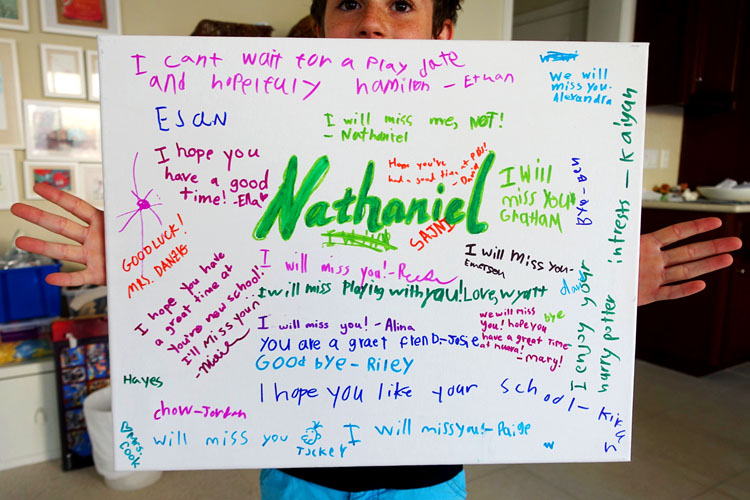 I cant wait for a play date
and hopelfuly hamilon - Ethan
We will
miss you-
Alexandra
ESAN
I will miss me, NOT!
- Nathaniel
I hope you
have a good
time! -Ella
Hope you've
had a good time at
Nathaniel
SAJNI
I Will
miss you
GRAHAM
Bye-
GOOD LUCK!
MRS. DANZIG
I will miss you! -
I will miss you-
Emerson
I will miss playing with you! Love, Wyatt
I hope you have
a great time at
you're new school!
I'll miss your
I will miss you! - Alina
We will miss
you! hope you
have a great time
at
- Mary!
bye
You are a graet friend-Josie
Good bye - Riley
I enjoy your
harry potter intrests - Kaiyan
Hayes
I hope you like your school - Kikan
chow-Jordan
Mrs.
Cook
will miss you
Tucker
I will miss you! - Paige